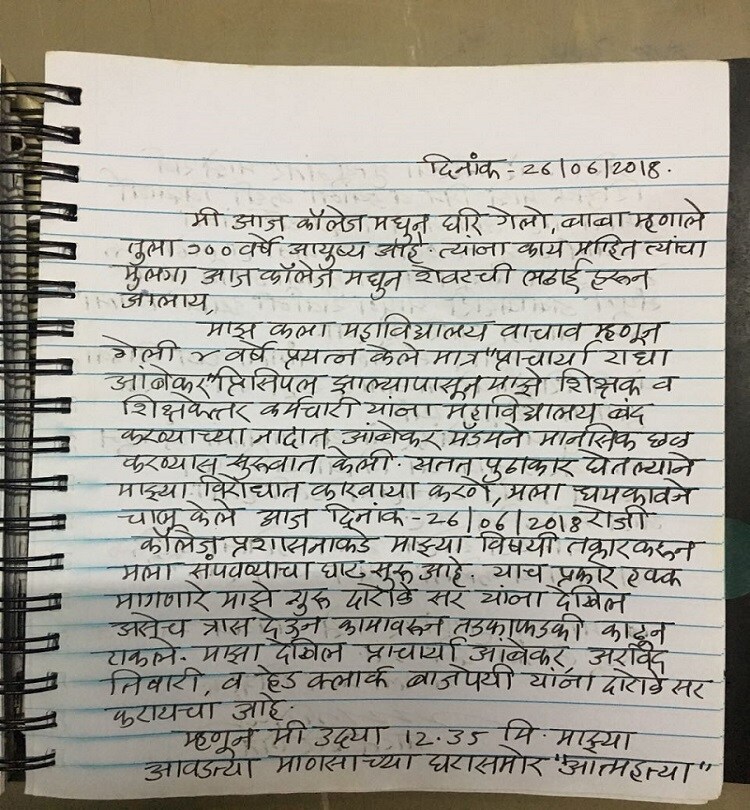 दिनांक - 26/06/2018.
मी आज कॉलेज मधुन घरि गेलो, बाबा म्हणाले
तुला १०० वर्षे आयुष्य आहे. त्यांना काय माहित त्यांचा
मुलगा आज कॉलेज मधुन शेवटची लढाई हरून
आलाय.
माझे कला महाविद्यालय वाचाव म्हणून
गेली ४ वर्षे प्रयत्न केले मात्र "प्राचार्या राधा
आंबेकर" प्रिंसिपल झाल्यापासून माझे शिक्षक व
शिक्षकेत्तर कर्मचारी यांना महाविद्यालय बंद
करण्याच्या नादात आंबेकर मॅडमने मानसिक छळ
करण्यास सुरूवात केली. सतत पुढाकार घेतल्याने
माझ्या विरोधात कारवाया करणे, मला धमकावने
चालू केले आज दिनांक - 26/06/2018 रोजी
कॉलेज प्रशासनाकडे माझ्या विषयी तक्रार करून
मला संपवण्याचा घाट सुरू आहे. याच प्रकारे हक्क
मागणारे माझे गुरू दारोळे सर यांना देखिल
असेच त्रास देउन कामावरून तडकाफडकी काढून
टाकले. माझा देखिल प्राचार्या आंबेकर, अरविंद
तिवारी, व हेड क्लार्क बाजपेयी यांना दारोळे सर
करायचा आहे.
म्हणून मी उद्या 12.35 मि. माझ्या
आवडत्या माणसाच्या घरासमोर "आत्महत्या"